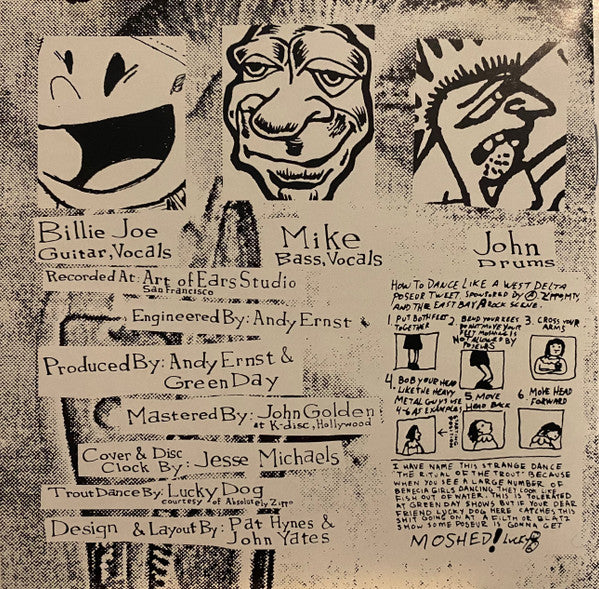 Billie Joe
Guitar, Vocals
Mike
Bass, Vocals
John
Drums
Recorded At: Art of Ears Studio
San Francisco
Engineered By: Andy Ernst
Produced By: Andy Ernst &
Green Day
Mastered By: John Golden
at K-disc, Hollywood
Cover & Disc
Clock By: Jesse Michaels
Trout Dance By: Lucky Dog
courtesy of Absolutely Zippo
Design & Layout By: Pat Hynes &
John Yates
HOW TO DANCE LIKE A WEST DELTA
POSEUR TWEET SPONSORED BY
AND THE EAST BAY ROCK SCENE.
1. PUT BOTH FEET
TOGETHER
2. BEND YOUR KNEES
DO NOT MOVE YOUR
FEET MOSHING IS
NOT ALLOWED BY
POSEURS
3. CROSS YOUR
ARMS
4. BOB YOUR HEAD
LIKE THE HEAVY
METAL GUYS USE
4-6 AS EXAMPLES
5. MOVE
HEAD BACK
6. MOVE HEAD
FORWARD
I HAVE NAME THIS STRANGE DANCE
THE RITUAL OF THE TROUT: BECAUSE
WHEN YOU SEE A LARGE NUMBER OF
BENECIA GIRLS DANCING, THEY LOOK LIKE
FISH OUT OF WATER. THIS IS TOLERATED
AT GREEN DAY SHOWS BUT IF YOUR DEAR
FRIEND LUCKY DOG HERE CATCHES THIS
SHIT GOING ON AT A FILTH OR BLATZ
SHOW SOME POSEUR IS GONNA GET
MOSHED! LUCKY